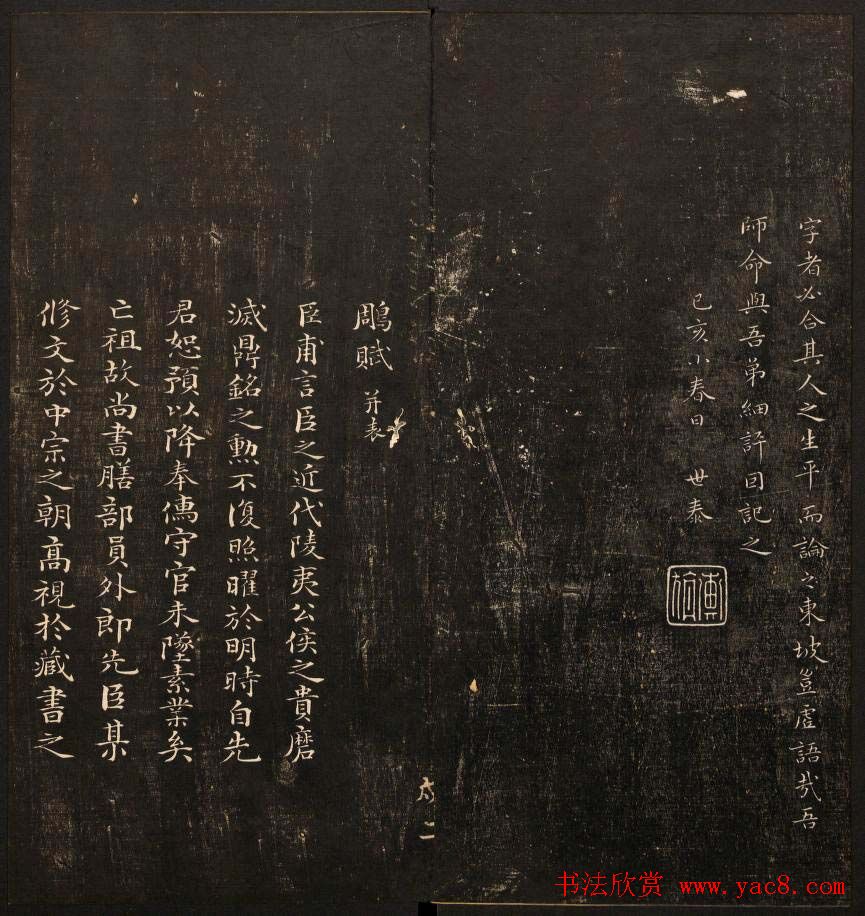 字者必合其人之生平而論之東坡豈虛語哉吾
師命與吾弟細評因記之
己亥小春日 世泰
鵰賦 并表
臣甫言臣之近代陵夷公侯之貴磨
滅鼎銘之勲不復照曜於明時自先
君恕預以降奉儒守官未墜素業矣
亡祖故尚書膳部員外郎先臣某
修文於中宗之朝高視於藏書之
二
书法欣赏 www.yac8.com